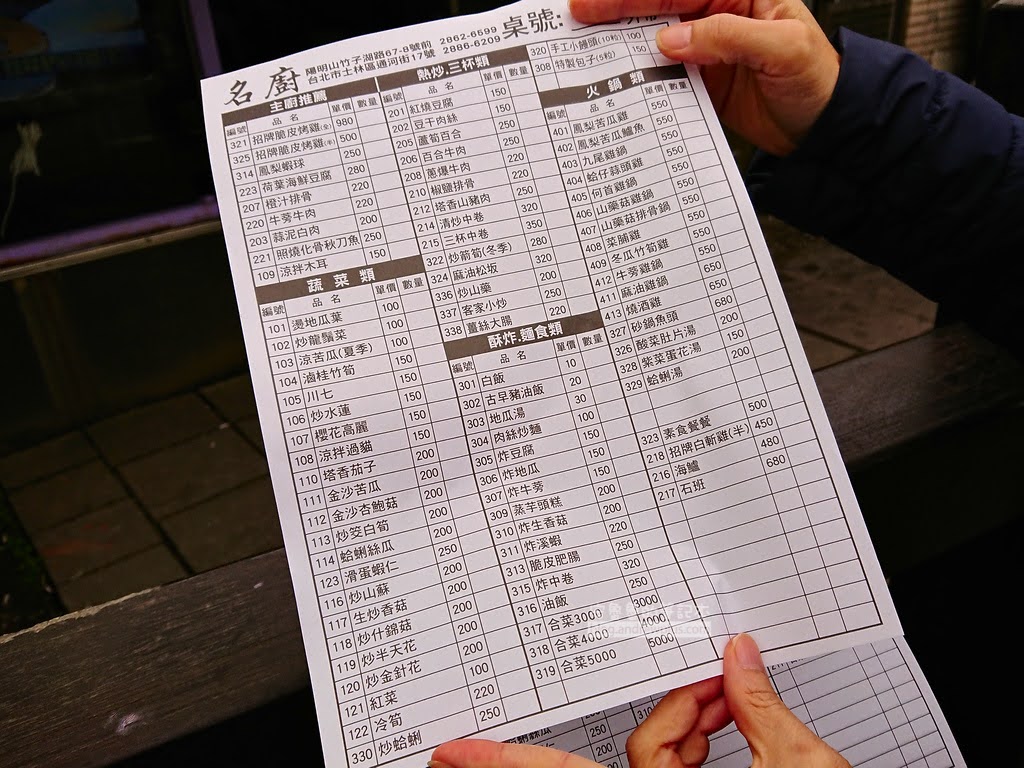 名廚 陽明山竹子湖路67-8號前 2862-6599
台北市士林區通河街17號 2886-6209
桌號:
主廚推薦
編號 品名 單價 數量
321 招牌脆皮烤雞(全) 980
325 招牌脆皮烤雞(半) 500
314 鳳梨蝦球 250
223 荷葉海鮮豆腐 280
207 橙汁排骨 220
220 牛蒡牛肉 220
203 蒜泥白肉 200
221 照燒化骨秋刀魚 250
109 涼拌木耳 150
蔬菜類
編號 品名 單價 數量
101 燙地瓜葉 100
102 炒龍鬚菜 100
103 涼苦瓜(夏季) 100
104 滷桂竹筍 150
105 川七 150
106 炒水蓮 150
107 櫻花高麗 150
108 涼拌過貓 150
110 塔香茄子 200
111 金沙苦瓜 200
112 金沙杏鮑菇 200
113 炒茭白筍 200
114 蛤蜊絲瓜 200
123 滑蛋蝦仁 250
116 炒山蘇 200
117 生炒香菇 200
118 炒什錦菇 200
119 炒半天花 200
120 炒金針花 200
121 紅菜 100
122 冷筍 220
330 炒蛤蜊 250
熱炒.三杯類
編號 品名 單價 數量
201 紅燒豆腐 150
202 豆干肉絲 150
205 蘆筍百合 250
206 百合牛肉 220
208 蔥爆牛肉 250
210 椒鹽排骨 220
212 塔香山豬肉 250
214 清炒中卷 320
215 三杯中卷 350
322 炒箭筍(冬季) 280
324 麻油松坂 320
336 炒山藥 200
337 客家小炒 250
338 薑絲大腸 220
酥炸.麵食類
編號 品名 單價 數量
301 白飯 10
302 古早豬油飯 20
303 地瓜湯 30
304 肉絲炒麵 100
305 炸豆腐 150
306 炸地瓜 150
307 炸牛蒡 150
309 蒸芋頭糕 200
310 炸生香菇 200
311 炸溪蝦 220
313 脆皮肥腸 250
315 炸中卷 320
316 油飯 250
317 合菜3000 3000
318 合菜4000 4000
319 合菜5000 5000
320 手工小饅頭(10粒) 100
308 特製包子(5粒) 150
火鍋類
編號 品名 單價 數量
401 鳳梨苦瓜雞 550
402 鳳梨苦瓜鱸魚 550
403 九尾雞鍋 550
404 蛤仔蒜頭雞 550
405 何首雞鍋 550
406 山藥菇雞鍋 550
407 山藥菇排骨鍋 550
408 菜脯雞 550
409 冬瓜竹筍雞 550
412 牛蒡雞鍋 550
411 麻油雞鍋 650
413 燒酒雞 650
327 砂鍋魚頭 680
326 酸菜肚片湯 150
328 紫菜蛋花湯 200
329 蛤蜊湯 200
323 素食餐餐 500
218 招牌白斬雞(半) 450
216 海鱸 480
217 石斑 680